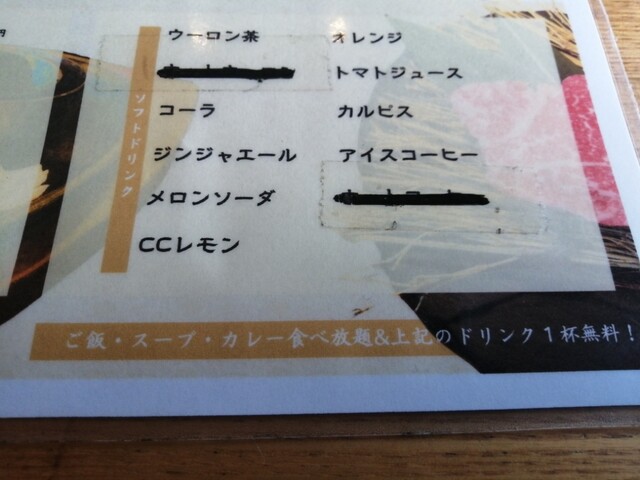 円
ソフトドリンク
ウーロン茶
コーラ
ジンジャエール
メロンソーダ
CCレモン
オレンジ
トマトジュース
カルピス
アイスコーヒー
ご飯・スープ・カレー食べ放題&上記のドリンク1杯無料!